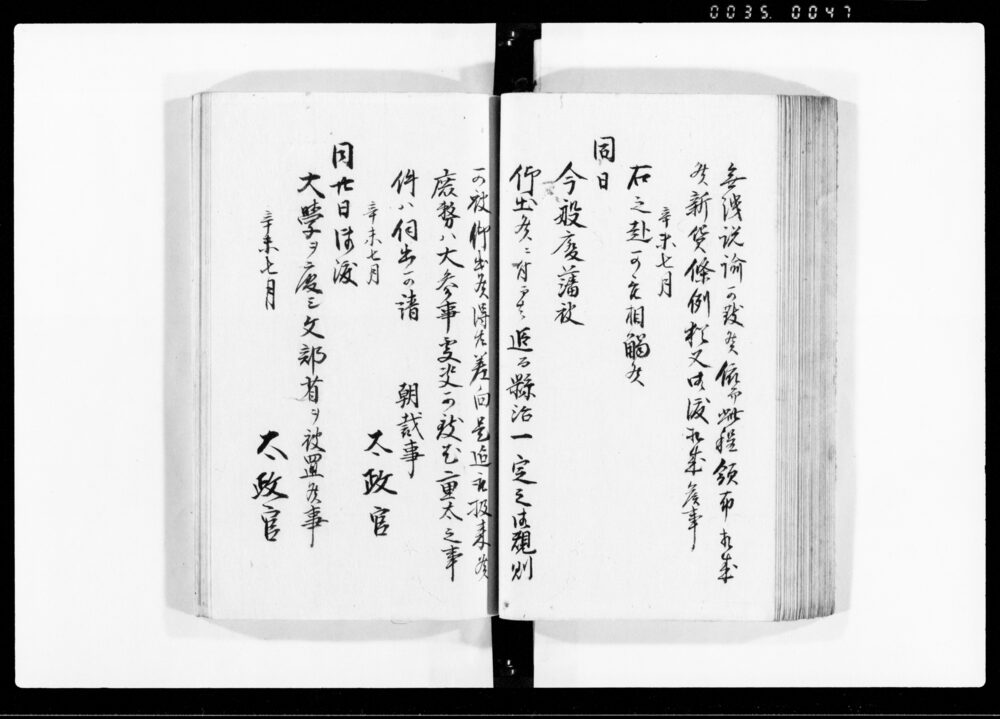 0035. 0047
無洩説諭可致候依而此程領布相成
候新貨條例相又御渡相成候事
辛未七月
右之趣可被相觸候
同日
今般廃藩被
仰出候ニ付而ハ追而縣治一定之御規則
可被仰出候得共差向是迄取扱来候
廃務ハ大参事受取可致尤重大之事
件ハ伺出可請 朝裁事
辛未七月 太政官
同廿日御渡
大學ヲ廃シ文部省ヲ被置候事
辛未七月 太政官